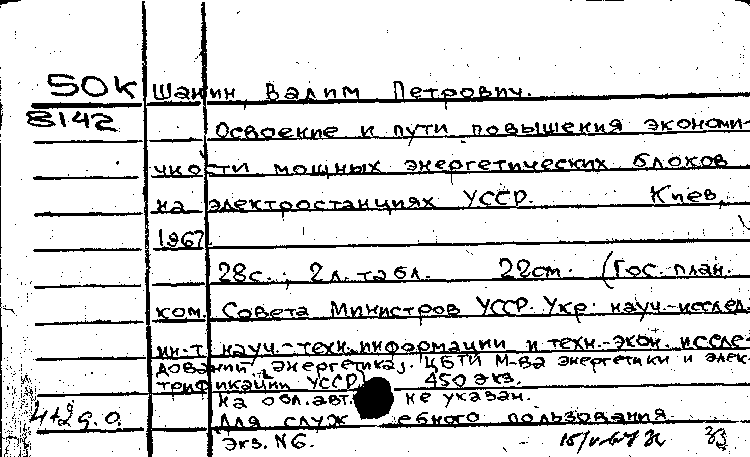 50К Шанин, Вадим Петрович.
8142 Освоение и пути повышения экономи-
чности мощных энергетических блоков
на электростанциях УССР. Киев,
1967.
28с.; 2л. табл. 22cm. (Гос. план.
ком. Совета Министров УССР. Укр. науч.-исслед.
ин-т науч.-техн. информации и техн.-экон. иссле-
дований „Энергетика". ЦБТИ М-ва энергетики и элек-
трификации УССР) 450 экз.
На обл. авт. не указан.
4+2д.о. Для служебного пользования
Экз. №6. 33